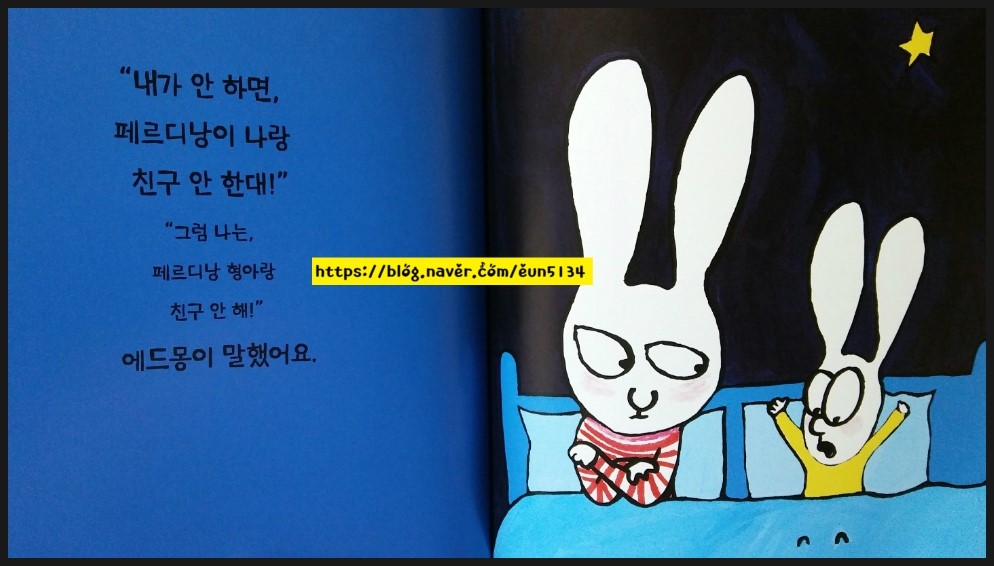 “내가 안 하면,
페르디낭이 나랑
친구 안 한대!”
“그럼 나는,
페르디낭 형아랑
친구 안 해!”
에드몽이 말했어요.
https://blog.naver.com/eun5134